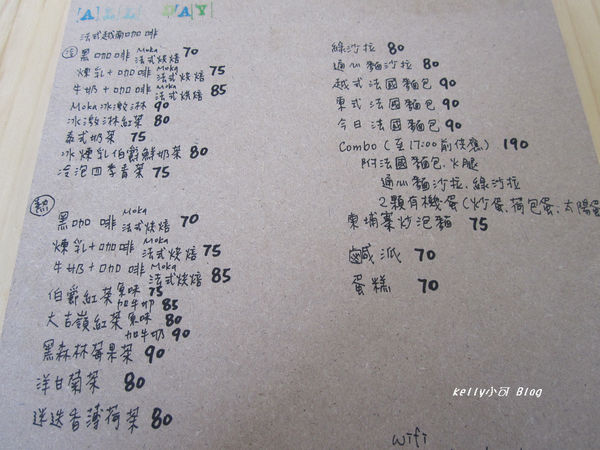 ALL DAY
法式越南咖啡
冷
黑咖啡 Moka 法式烘焙 70
煉乳+咖啡 Moka 法式烘焙 75
牛奶+咖啡 Moka 法式烘焙 85
Moka冰激淋 90
冰激淋紅茶 80
泰式奶茶 75
冰煉乳伯爵鮮奶茶 80
冷泡四季青茶 75
熱
黑咖啡 Moka 法式烘焙 70
煉乳+咖啡 Moka 法式烘焙 75
牛奶+咖啡 Moka 法式烘焙 85
伯爵紅茶 原味 75
加牛奶 85
大吉嶺紅茶 原味 80
加牛奶 90
黑森林莓果茶 90
洋甘菊茶 80
迷迭香薄荷茶 80
綠沙拉 80
通心麵沙拉 80
越式法國麵包 90
東式法國麵包 90
今日法國麵包 90
Combo (至17:00前供應) 190
附法國麵包.火腿
通心麵沙拉.綠沙拉
2顆有機蛋(炒蛋.荷包蛋.太陽蛋
柬埔寨炒泡麵 75
鹹派 70
蛋糕 70
kelly小可 Blog
wifi